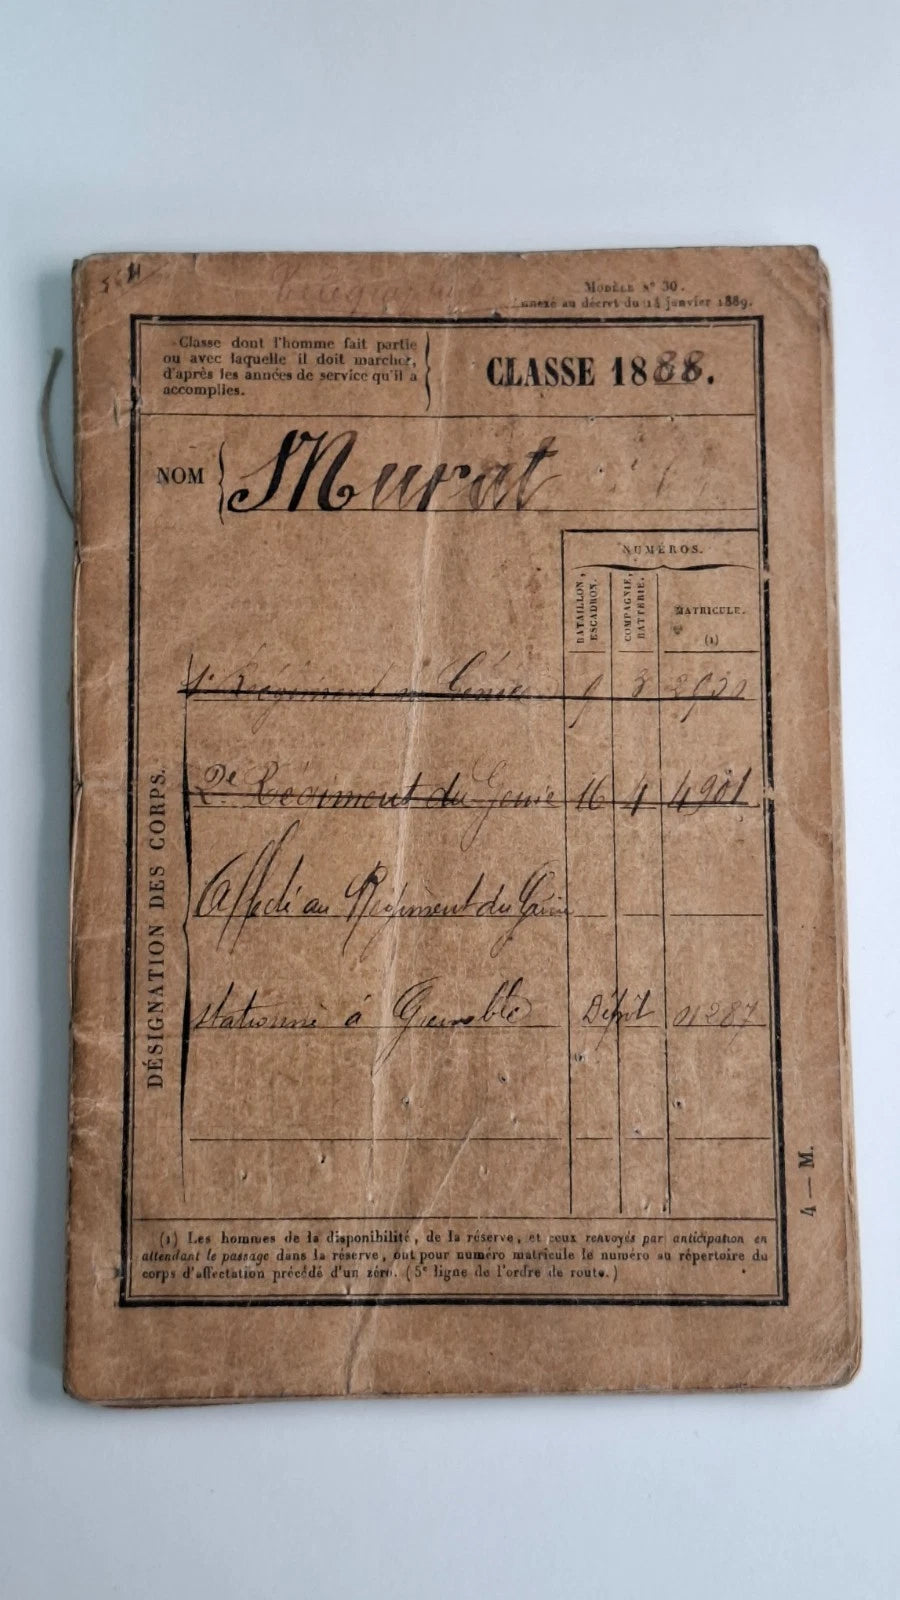 Modèle N° 30.
Annexé au décret du 14 janvier 1889.
Classe dont l'homme fait partie
ou avec laquelle il doit marcher,
d'après les années de service qu'il a
accomplies.
CLASSE 1888.
NOM
Murat
NUMÉROS.
BATAILLON,
ESCADRON.
COMPAGNIE,
BATTERIE.
MATRICULE.
(1)
DÉSIGNATION DES CORPS.
Régiment Génie
2e Régiment du Génie 16 4 4901
Affecté au Régiment du Génie
stationné à Grenoble Dépôt 01287
4 — M.
(1) Les hommes de la disponibilité, de la réserve, et ceux renvoyés par anticipation en
attendant le passage dans la réserve, ont pour numéro matricule le numéro au répertoire du
corps d'affectation précédé d'un zéro. (5e ligne de l'ordre de route.)